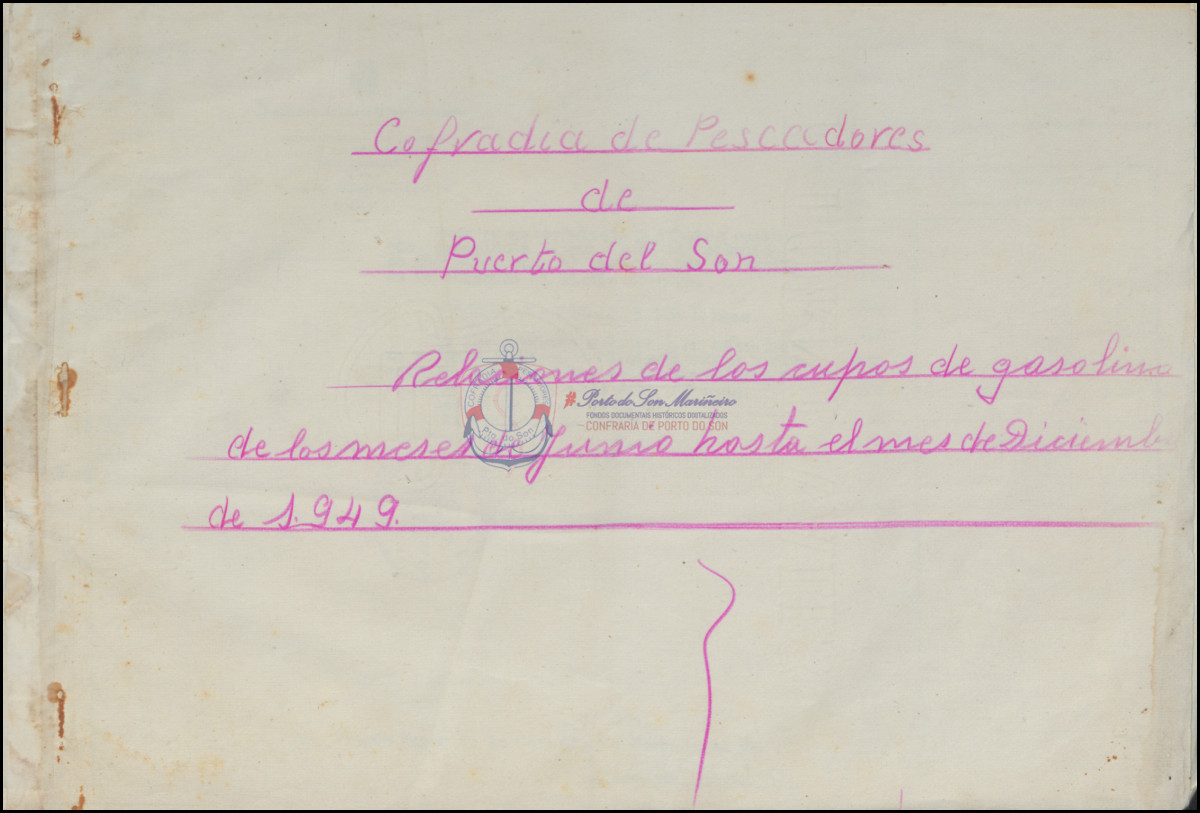 Cofradia de Pescadores
de
Puerto del Son
Relaciones de los cupos de gasolina
# Porto do Son Mariñeiro
FONDOS DOCUMENTAIS HISTÓRICOS DIXITALIZADOS
CONFRARÍA DE PORTO DO SON
de los meses de Junio hasta el mes de Diciemb
de 1.949.